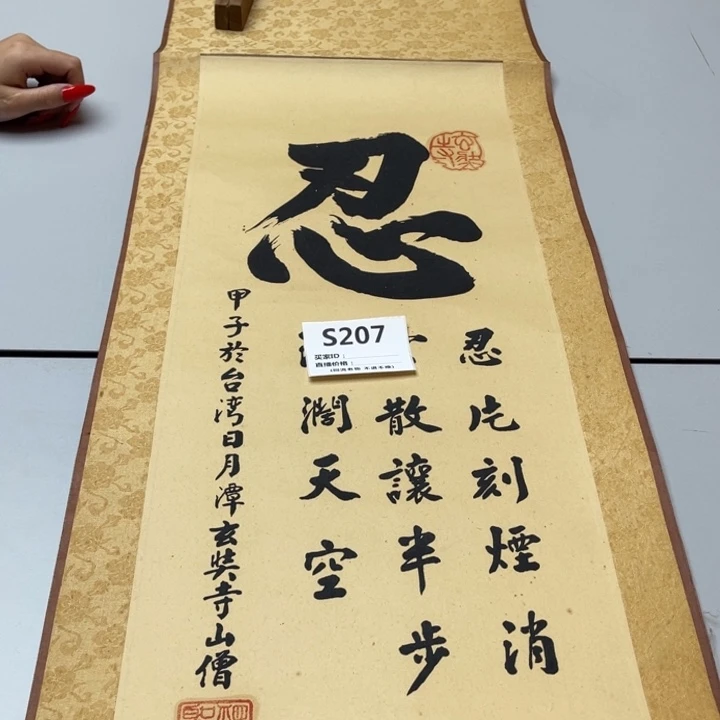 忍
忍片刻煙消
散讓半步
濶天空
甲子於台湾日月潭玄奘寺山僧
S207
买家ID：
直播价格：